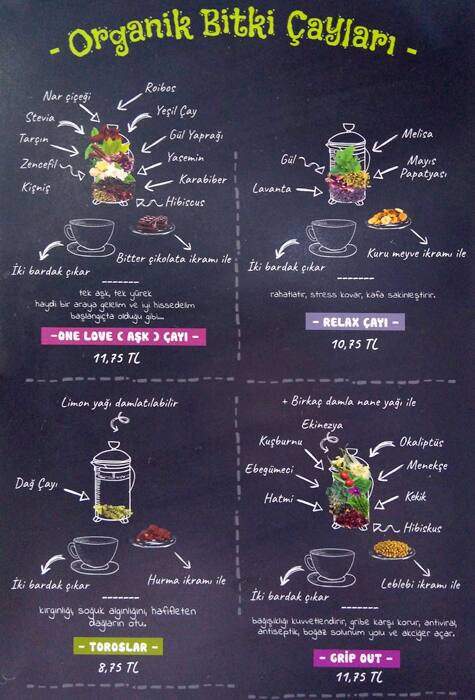 - Organik Bitki Çayları -
Nar çiçeği
Roibos
Stevia
Yeşil Çay
Tarçın
Gül Yaprağı
Zencefil
Yasemin
Kişniş
Karabiber
Hibiscus
İki bardak çıkar
Bitter çikolata ikramı ile
tek aşk, tek yürek
haydi bir araya gelelim ve iyi hissedelim
başlangıçta olduğu gibi...
-ONE LOVE ( AŞK ) ÇAYI -
11,75 TL
Melisa
Gül
Mayıs
Papatyası
Lavanta
İki bardak çıkar
Kuru meyve ikramı ile
rahatlatır, stress kovar, kafa sakinleştirir.
- RELAX ÇAYI -
10,75 TL
Limon yağı damlatılabilir
Dağ Çayı
İki bardak çıkar
Hurma ikramı ile
kırgınlığı, soğuk algınlığını, hafifleten
dağların otu.
- TOROSLAR -
8,75 TL
+ Birkaç damla nane yağı ile
Ekinezya
Kuşburnu
Okaliptüs
Ebegümeci
Menekşe
Hatmi
Kekik
Hibiskus
İki bardak çıkar
Leblebi ikramı ile
bağışıklığı kuvvetlendirir, gribe karşı korur, antiviral,
antiseptik, boğaz solunum yolu ve akciğer açar.
- GRİP OUT -
11,75 TL